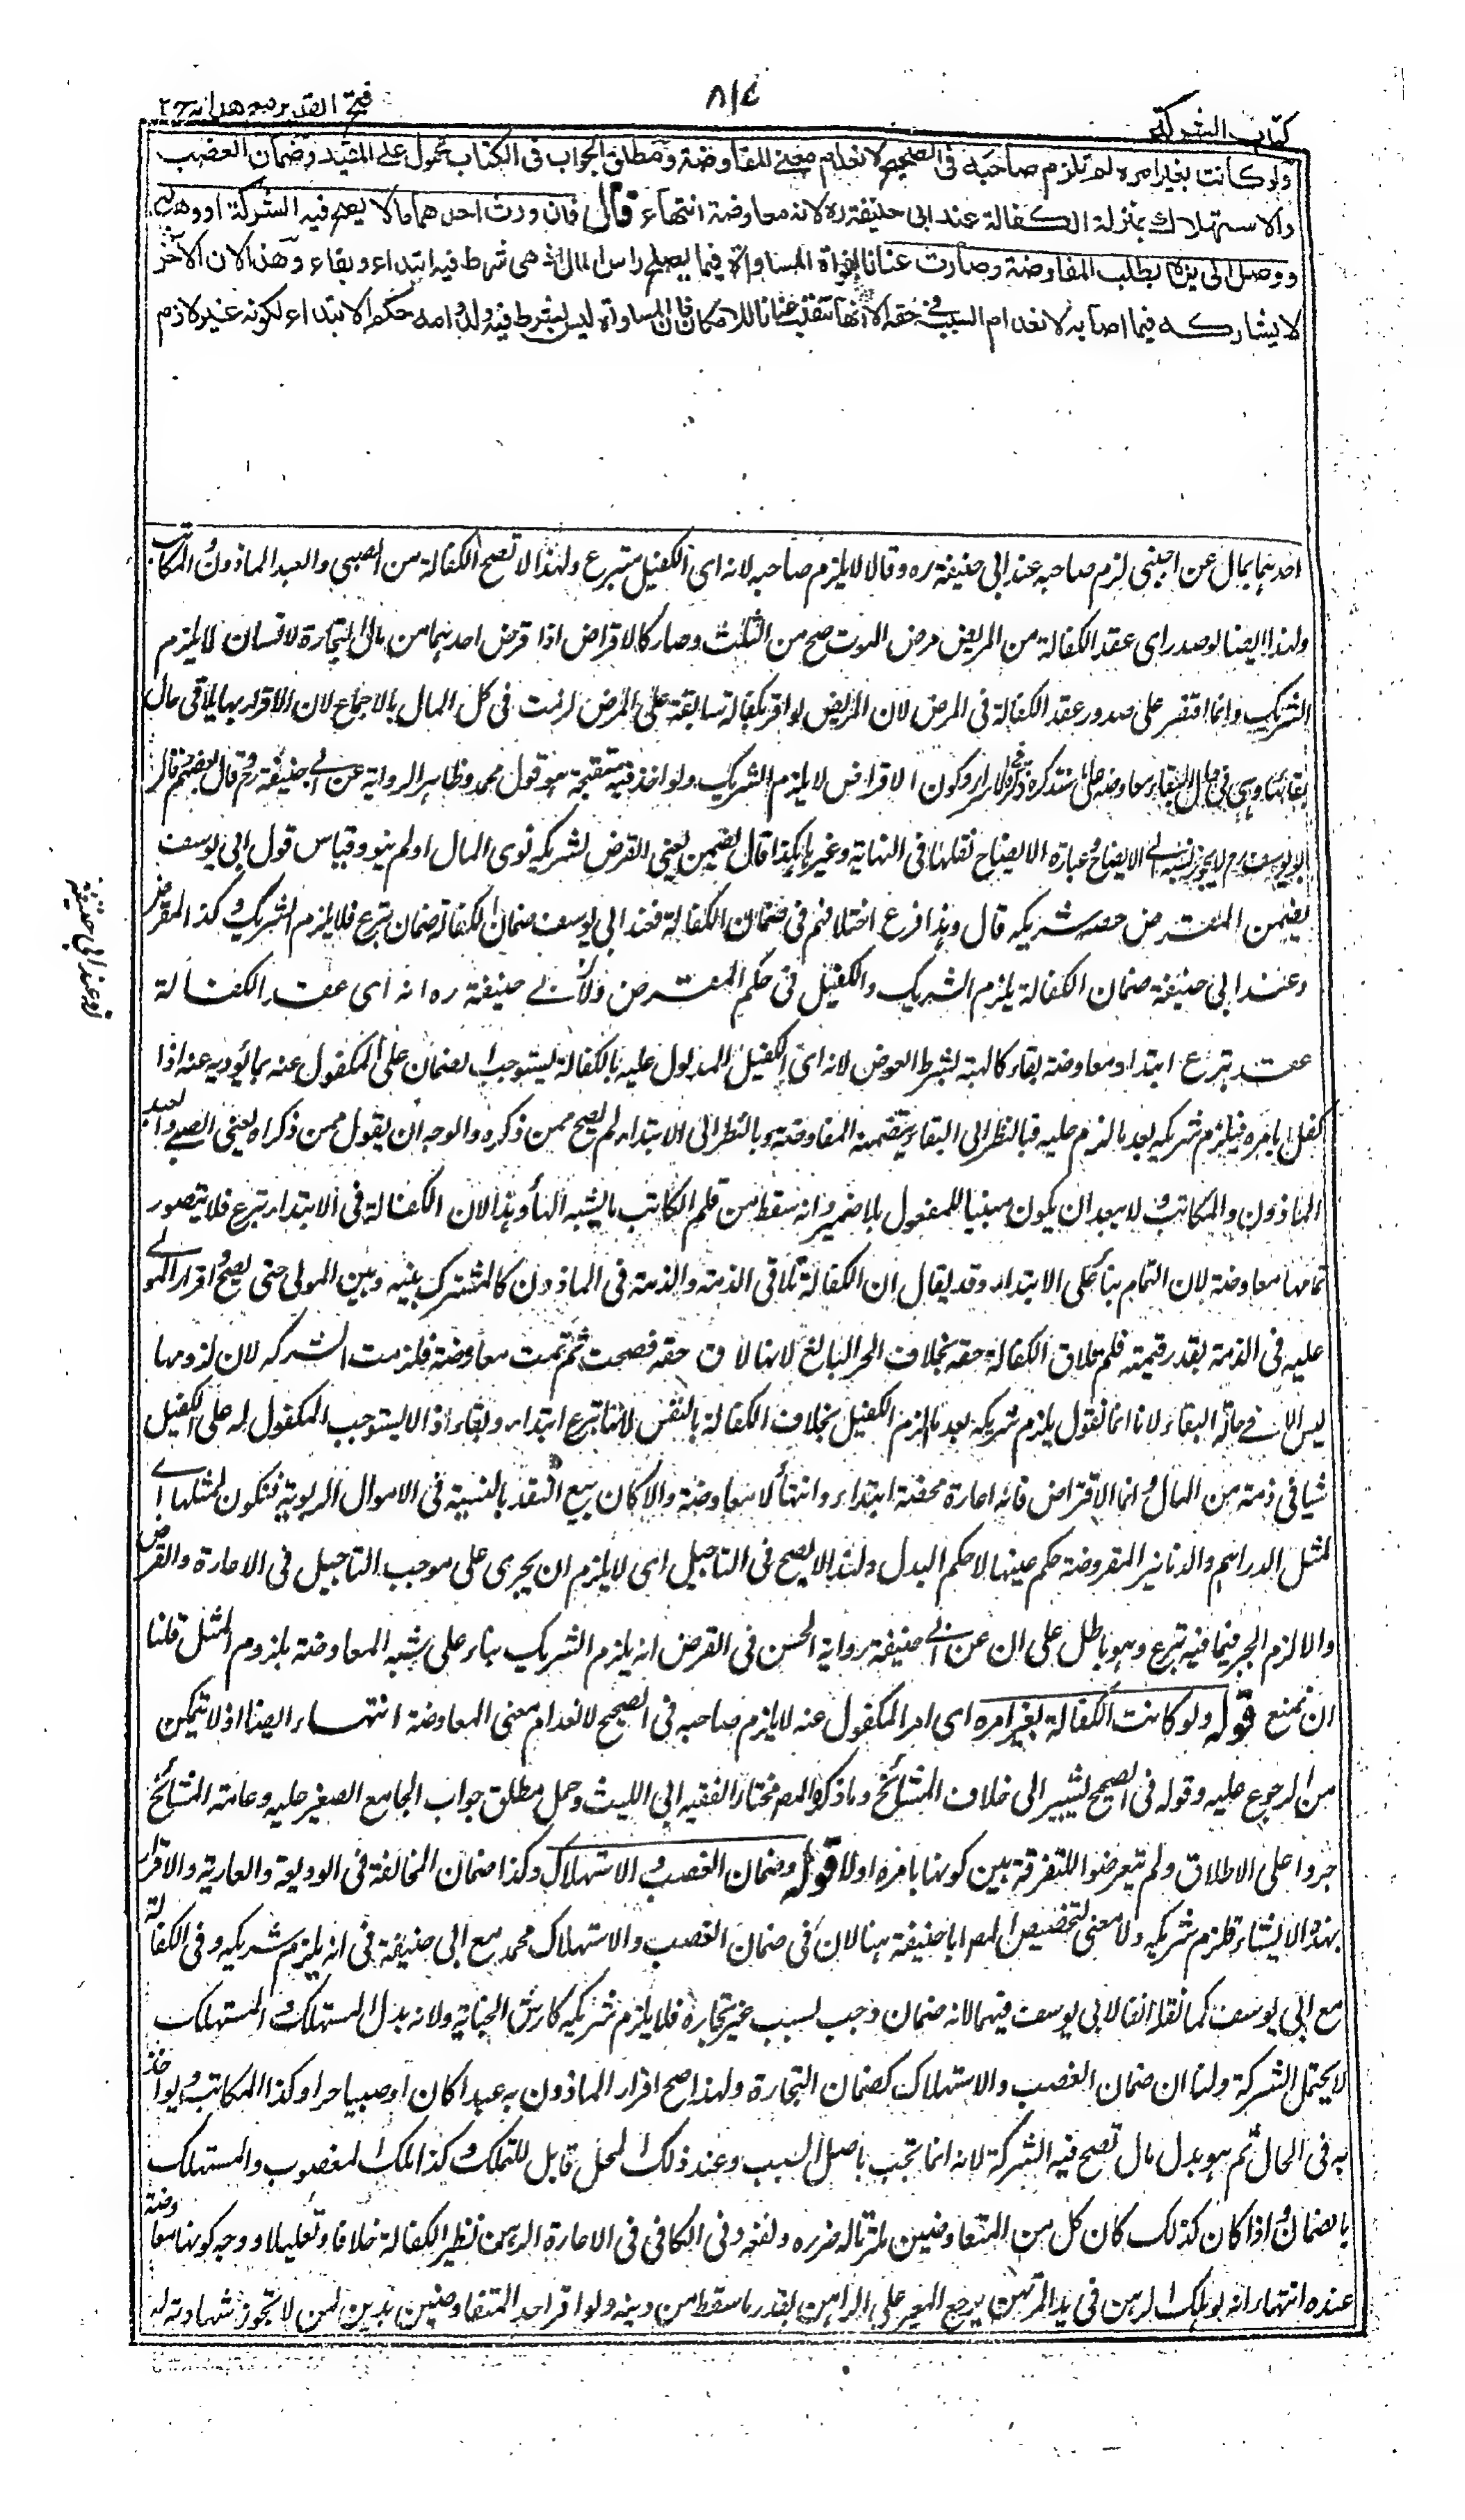 كتاب الشركة
٨١٤
فتح القدير مع هدايه ج٢
ولو كانت بغير امره لم تلزم صاحبه فى الصحيح لانعدام معنى المفاوضة ومطلق الجواب فى الكتاب محمول على المقيد وضمان الغصب
والاستهلاك بمنزلة الكفالة عند ابى حنيفة ره لانه معاوضة انتهاء قال فان ورث احدهما مالا يصح فيه الشركة او وهب له
ووصل الى يده بطلت المفاوضة وصارت عنانا لفوات المساواة فيما يصلح راس المال اذ هى شرط فيه ابتداء وبقاء وهذا لان الآخر
لا يشاركه فيما اصابه لانعدام السبب فى حقه الا انها تنقلب عنانا للامكان فان المساواة ليس بشرط فيه ولدوامه حكم الابتداء لكونه غير لازم
احدهما بمال عن اجنبى لزم صاحبه عند ابى حنيفة ره وقالا لا يلزم صاحبه لانه اى الكفيل متبرع ولهذا لا تصح الكفالة من الصبى والعبد الماذون والمكاتب
ولهذا ايضا لو صدر اى عقد الكفالة من المريض مرض الموت صح من الثلث وصار كالاقراض اذا قرض احدهما من مال التجارة لانسان لا يلزم
الشريك وانما اقتصر على صدور عقد الكفالة فى المرض لان المريض لو اقر بكفالة سابقة على المرض لزمت فى كل المال بالاجماع لان الاقرار بها يلاقى حال
بقائها وهى فى حال البقاء معاوضة وكون الاقراض لا يلزم الشريك ولو اخذ فيه سفتجة هو قول محمد وظاهر الرواية عن ابى حنيفة وقال بعضهم قال
ابو يوسف رح لا يجوز نسبه الى الايضاح وعبارة الايضاح نقلها فى النهاية وغيرها هكذا قال يضمن يعنى القرض لشريكه توى المال او لم يتو وقياس قول ابى يوسف
يضمن المقرض حصة شريكه قال وهذا فرع اختلافهم فى ضمان الكفالة فعند ابى يوسف ضمان الكفالة ضمان تبرع فلا يلزم الشريك وكذا المقرض
وعند ابى حنيفة ضمان الكفالة يلزم الشريك والكفيل فى حكم المقرض ولابى حنيفة ره انه اى عقد الكفالة
عقد تبرع ابتداء ومعاوضة بقاء كالهبة بشرط العوض لانه اى الكفيل المدلول عليه بالكفالة يستوجب الضمان على المكفول عنه بما يؤديه عنه اذا
كفل بامره فيلزم شريكه بعد ما لزم عليه فبالنظر الى البقاء يتضمنه المفاوضة وبالنظر الى الابتداء لم يصح ممن ذكره والوجه ان يقول ممن ذكراه يعنى الصبى والعبد
الماذون والمكاتب ولا يبعد ان يكون مبنيا للمفعول بلا ضمير وانه سقط من قلم الكاتب ما يشبه الهاء وهذا لان الكفالة فى الابتداء تبرع فلا يتصور
تمامها معاوضة لان التمام بناء على الابتداء وقد يقال ان الكفالة تلاقى الذمة والذمة فى الماذون كالمشترك بينه وبين المولى حتى يصح اقرار المولى
عليه فى الذمة بقدر قيمته فلم تلاق الكفالة حقه بخلاف الحر البالغ لانها لاقت حقه فصحت ثم تمت معاوضة فلزمت الشركة لان لزومها
ليس الا فى حالة البقاء لانا انما نقول يلزم شريكه بعد ما لزم الكفيل بخلاف الكفالة بالنفس لانها تبرع ابتداء وبقاء اذ لا يستوجب المكفول له على الكفيل
شيا فى ذمته من المال واما الاقراض فانه اعارة محضة ابتداء وانتهاء لا معاوضة والا كان بيع النقد بالنسية فى الاموال الربوية فتكون لمثلها اى
لمثل الدراهم والدنانير المقروضة حكم عينها لا حكم البدل ولهذا لا يصح فى التاجيل اى لا يلزم ان يجرى على موجب التاجيل فى الاعارة والقرض
والا لزم الجبر فيما فيه تبرع وهو باطل على ان عن ابى حنيفة برواية الحسن فى القرض انه يلزم الشريك بناء على شبه المعاوضة بلزوم المثل فلنا
ان نمنع قوله ولو كانت الكفالة بغير امره اى امر المكفول عنه لا يلزم صاحبه فى الصحيح لانعدام معنى المعاوضة انتهاء ايضا اذ لا يتمكن
من الرجوع عليه وقوله فى الصحيح يشير الى خلاف المشائخ وما ذكره المص مختار الفقيه ابى الليث وحمل مطلق جواب الجامع الصغير عليه وعامة المشائخ
جروا على الاطلاق ولم يتعرضوا للتفرقة بين كونها بامره اولا قوله وضمان الغصب والاستهلاك وكذا ضمان المخالفة فى الوديعة والعارية والاقرار
بهذه الاشياء تلزم شريكه ولا معنى لتخصيص المص ابا حنيفة هنا لان فى ضمان الغصب والاستهلاك محمد مع ابى حنيفة فى انه يلزم شريكه وفى الكفالة
مع ابى يوسف كما نقلا انفا لابى يوسف فيهما لانه ضمان وجب بسبب غير تجارة فلا يلزم شريكه كارش الجناية ولانه بدل المستهلك والمستهلك
لا يحتمل الشركة ولنا ان ضمان الغصب والاستهلاك كضمان التجارة ولهذا صح اقرار الماذون به عبدا كان او صبيا حرا وكذا المكاتب ويواخذ
به فى الحال ثم هو بدل مال تصح فيه الشركة لانه انما تجب باصل السبب وعند ذلك المحل قابل للتملك وكذا الملك المغصوب والمستهلك
بالضمان واذا كان كذلك كان كل من المتعاوضين ملتزما له ضرره ونفعه وفى الكافى فى الاعارة للرهن نظير الكفالة خلافا وتعليلا ووجه كونها معاوضة
عنده انتهاء انه لو هلك الرهن فى يد المرتهن يرجع المعير على الراهن بقدر ما سقط من دينه ولو اقر احد المتفاوضين بدين لمن لا تجوز شهادته له
وعند ابى حنيفة